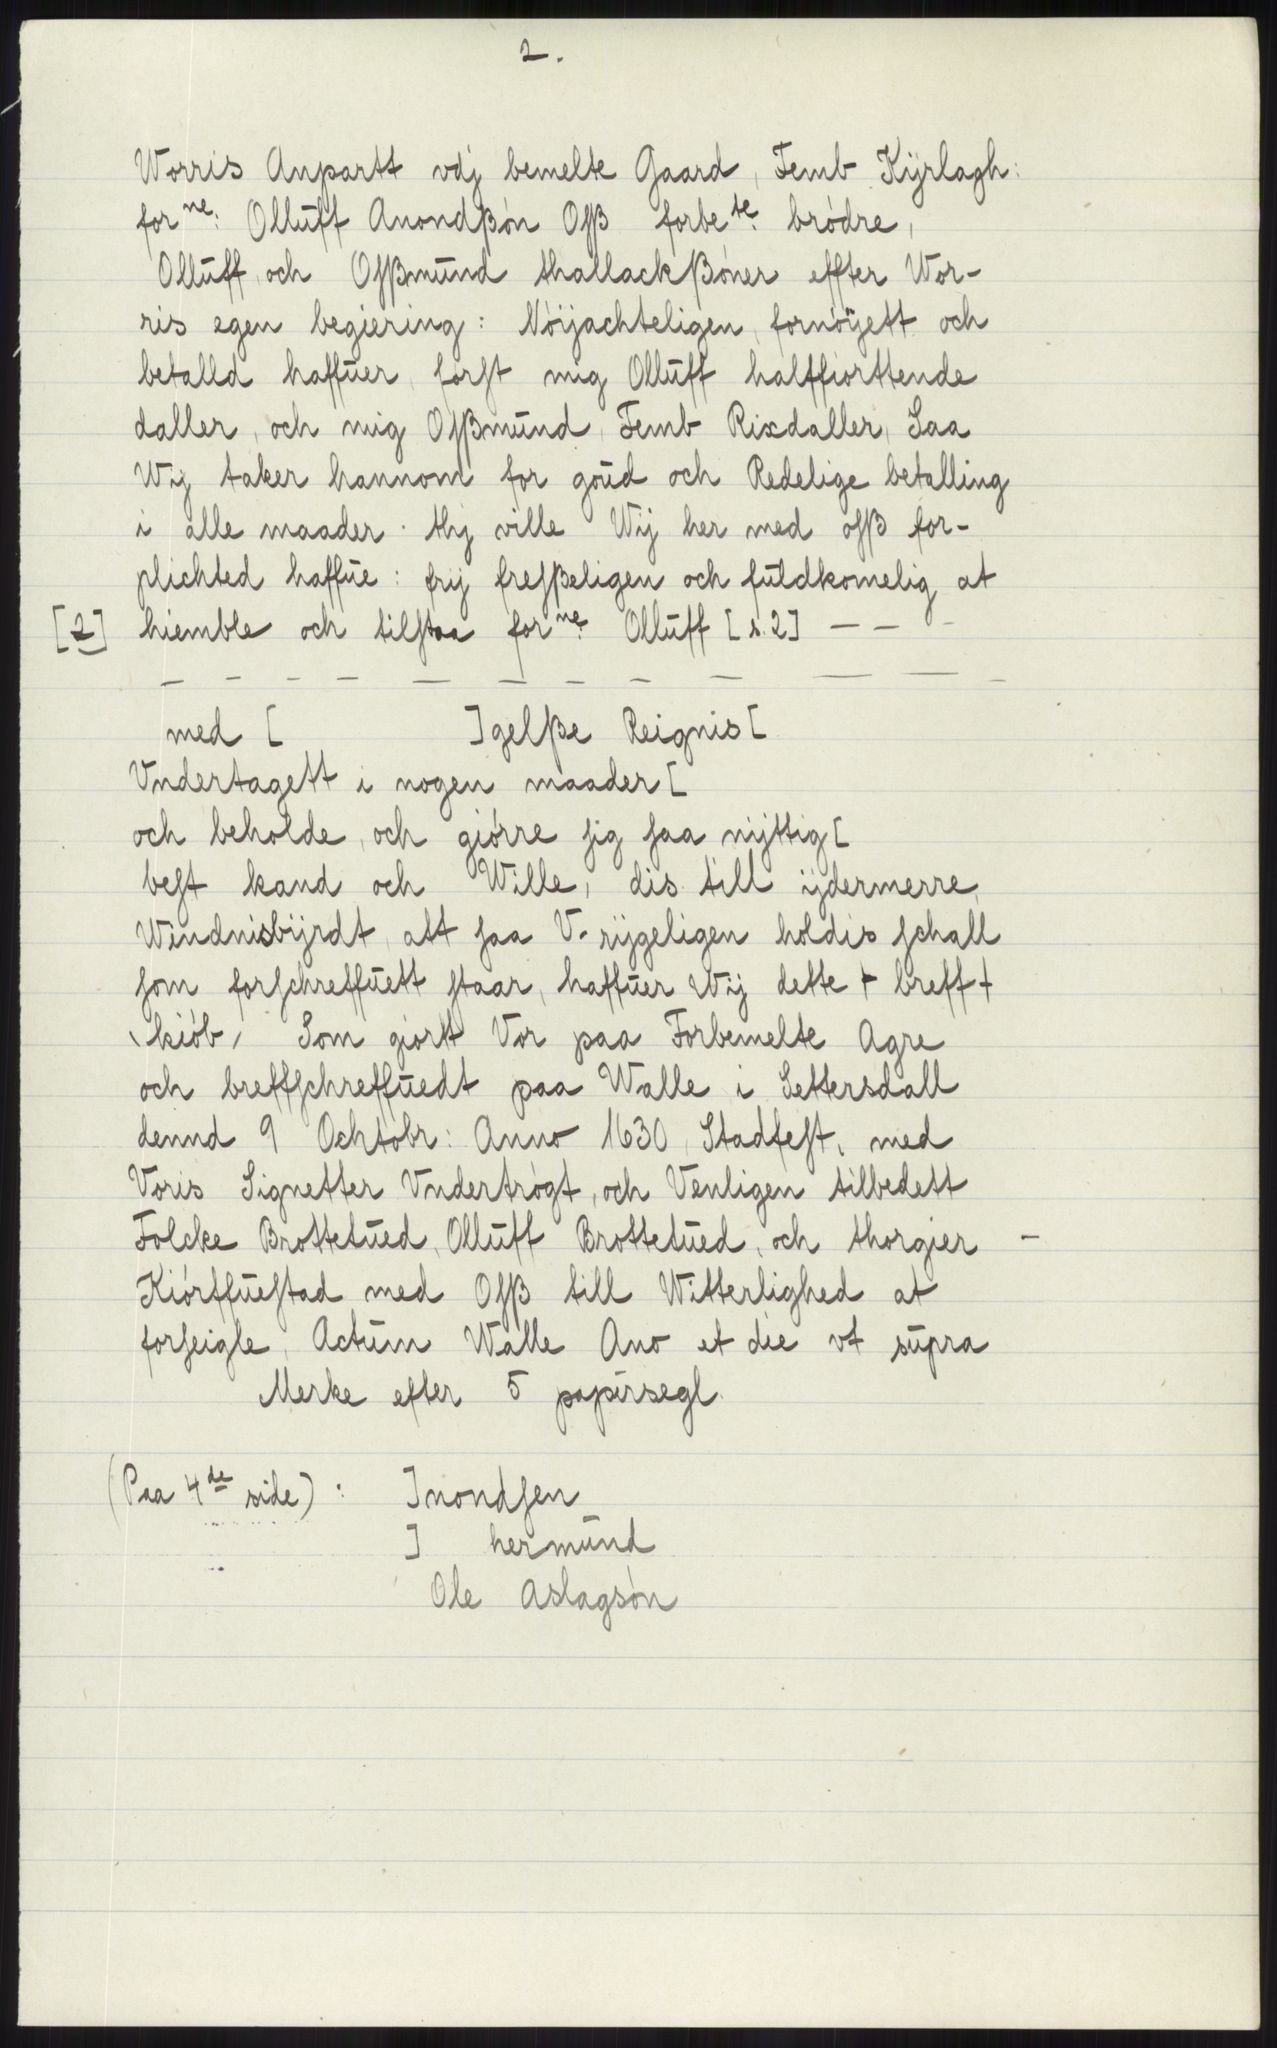 2.
Worris Anpartt vdj bemelte Gaard, Femb Kÿrlagh:
for ne: Olluff Anondßön Oſß forbe te. brödre,
Olluff och Oſßmund thallackßöner effter Wor-
ris egen begiering: Nöÿachteligen, fornöÿett och
betalld haffuer, först mig Olluff halffiorttende
daller, och mig Oſßmund, Femb Rixdaller, Saa
Wij taker hannom for goud och Redelige betalling
i alle maader. thj ville Wij her med oſß for-
plichted haffue: frij freſßeligen och fuldkomelig at
[2] hiemble och tilſtaa for ne. Olluff [s.2] — — —
— — — — — — — — — — — — —
med [ ]gelße Reignis [
Vndertagett i nogen maader [
och beholde, och giörre ſig ſaa nyttig [
beſt kand och Wille, dis till ÿdermerre,
Windnisbÿrdt, att ſaa V-rÿgeligen holdis ſchall
ſom forſchreffuett ſtaar, haffuer Wij dette + breff +
\kiöb/ Som giortt Vor paa Forbemelte Agre
och breffſchreffuedt paa Walle i Settersdall
dennd 9 Ochtobr: Anno 1630, Stadfeſt, med
Voris Signetter Vndertrögt, och Venligen tilbedett
Folcke Brottetued, Olluff Brottetued, och thorgier —
Kiörtfueſtad med Oſß till Witterlighed at
forſeigle, Actum Walle Ano et die vt supra
Merke efter 5 papirsegl.
(Paa 4de side): ]nondſen
] hermund
Ole Aslagsön